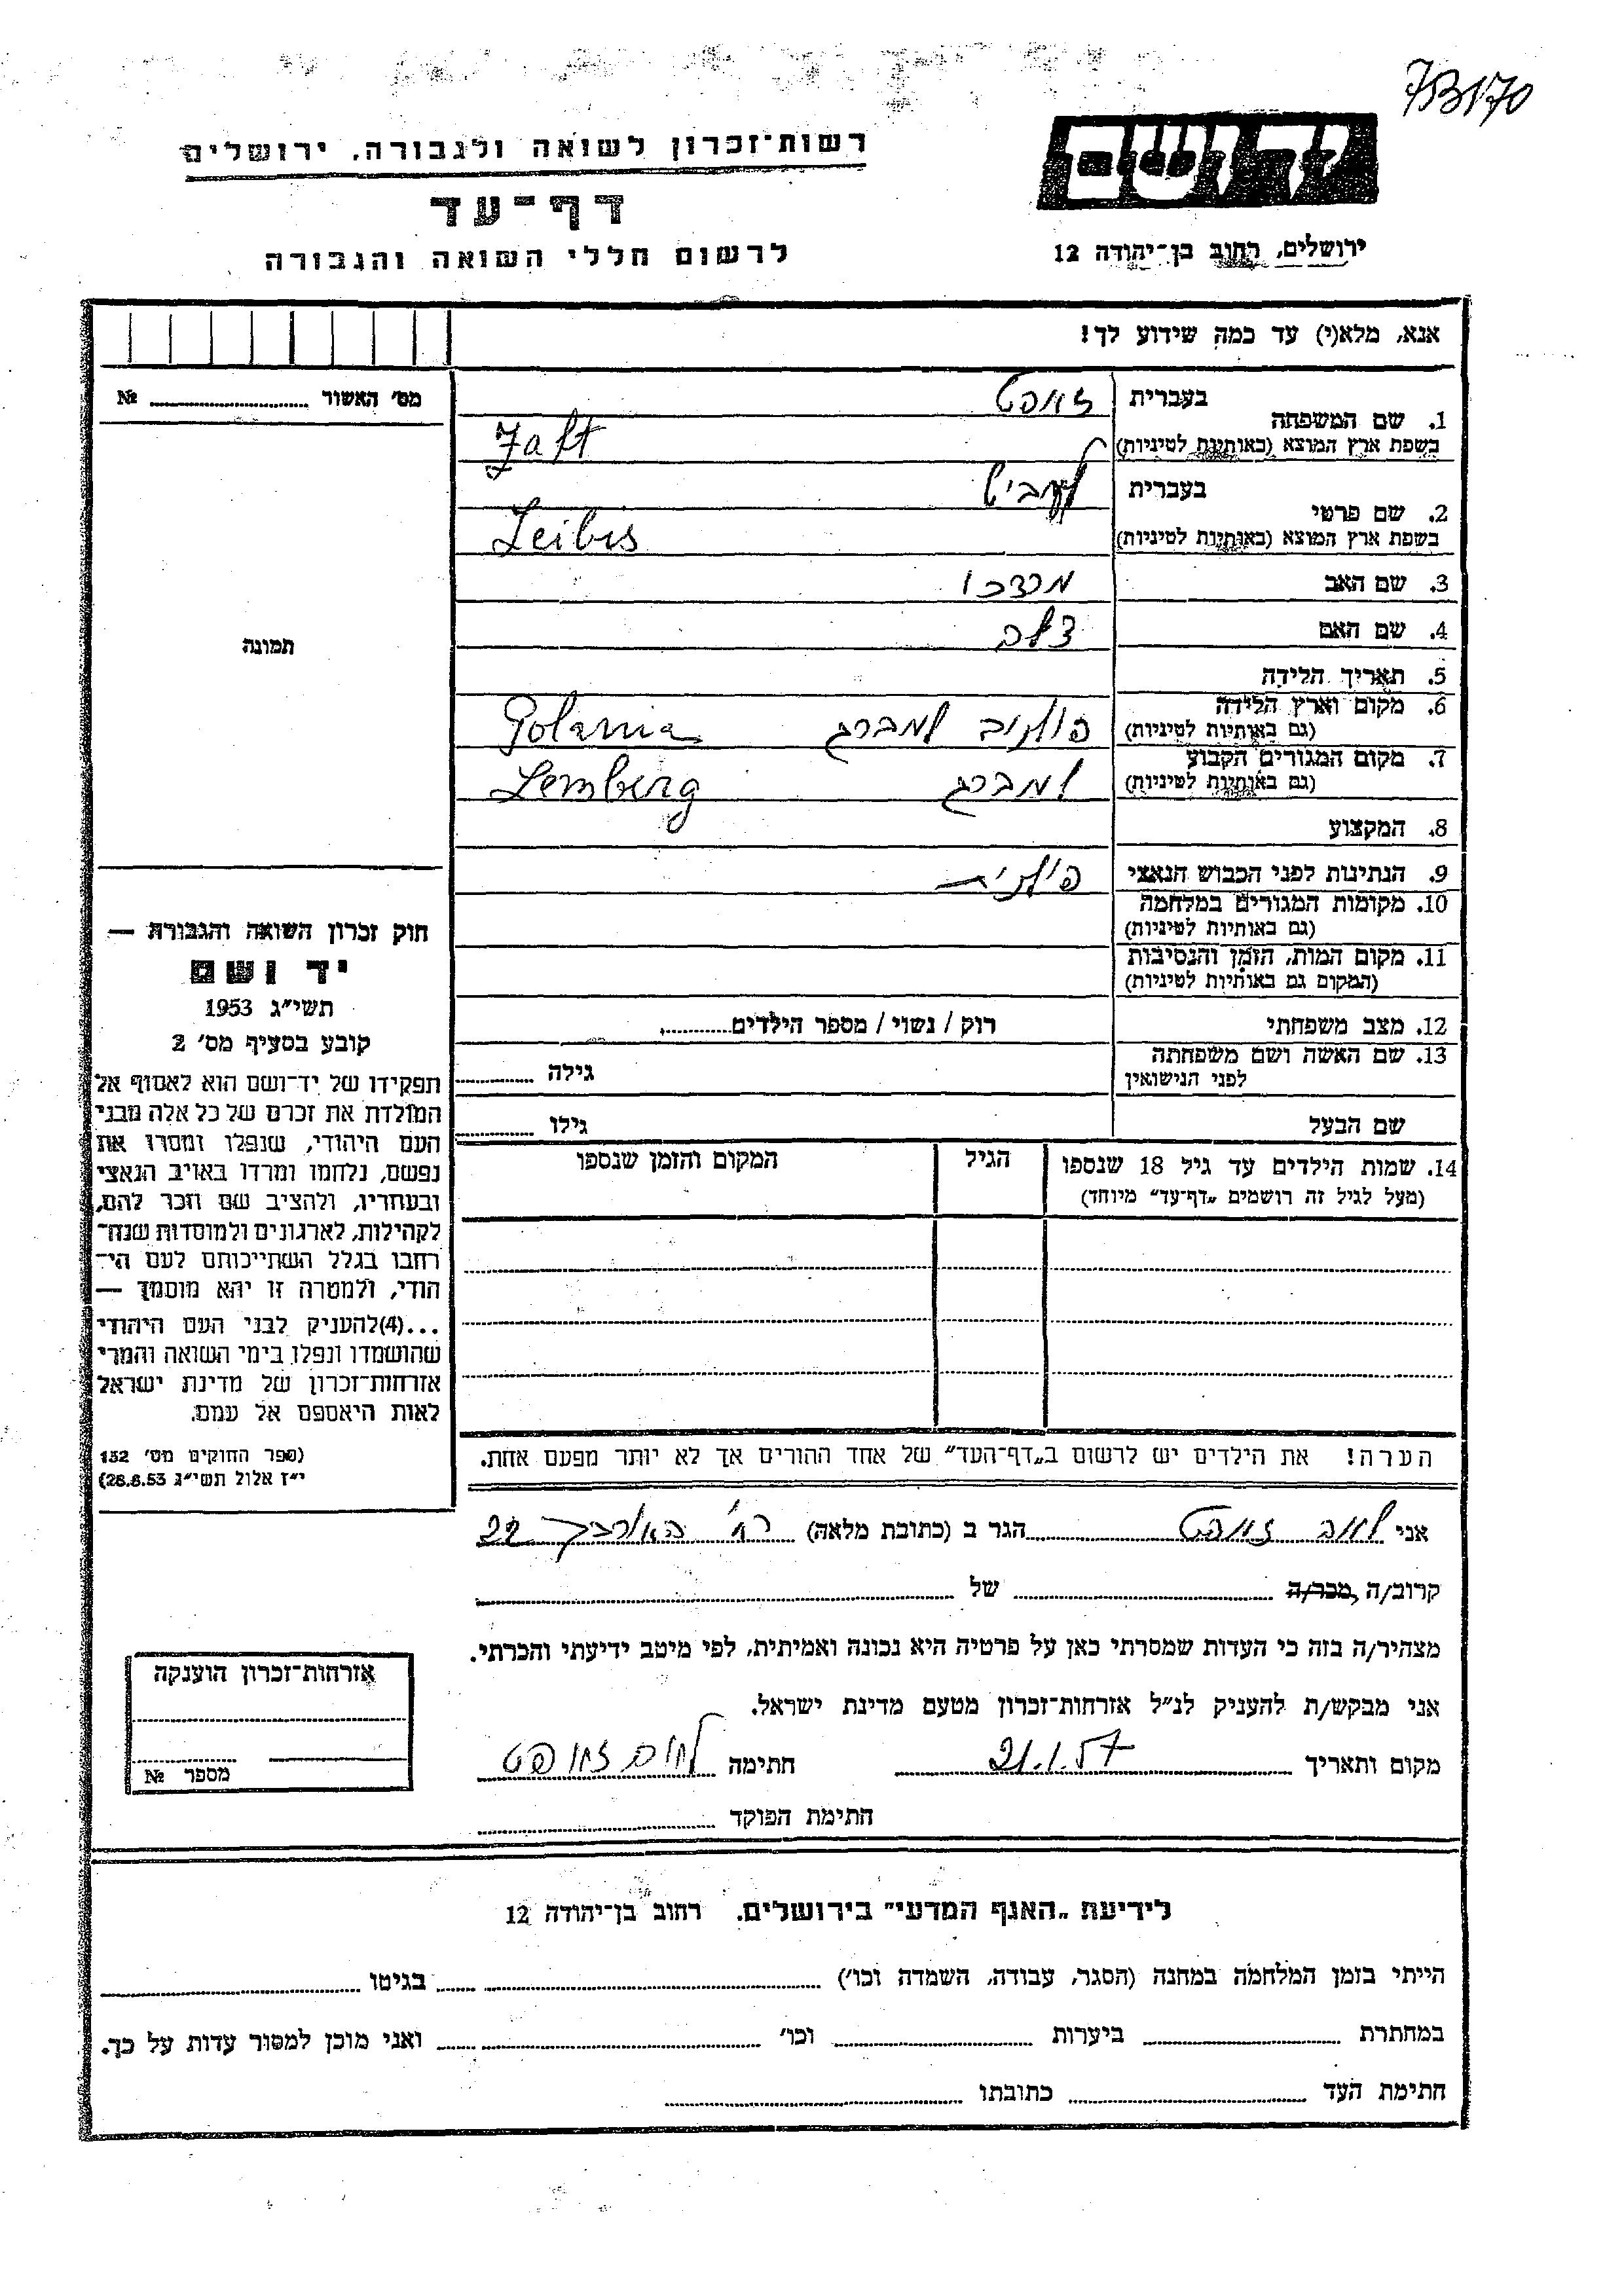 73170
רשות־זכרון לשואה ולגבורה, ירושלים
דף־עד
לרשום חללי השואה והגבורה
יד ושם
ירושלים, רחוב בן־יהודה 12
אנא, מלא(י) עד כמה שידוע לך!
מס׳ האשור № 
1. שם המשפחה
בעברית זאפט
בשפת ארץ המוצא (באותיות לטיניות) Zaft
2. שם פרטי
בעברית
בשפת ארץ המוצא (באותיות לטיניות) Leibis
3. שם האב מרדכי
4. שם האם
5. תאריך הלידה
6. מקום וארץ הלידה
(גם באותיות לטיניות) למברג Polania
7. מקום המגורים הקבוע
(גם באותיות לטיניות) למברג Lemberg
8. המקצוע
9. הנתינות לפני הכבוש הנאצי פולנית
10. מקומות המגורים במלחמה
(גם באותיות לטיניות)
11. מקום המות, הזמן והנסיבות
(המקום גם באותיות לטיניות)
12. מצב משפחתי רוק / נשוי / מספר הילדים
13. שם האשה ושם משפחתה
לפני הנישואין גילה
שם הבעל גילו
14. שמות הילדים עד גיל 18 שנספו
(מעל לגיל זה רושמים „דף־עד״ מיוחד)
הגיל
המקום והזמן שנספו
הערה! את הילדים יש לרשום ב„דף־העד״ של אחד ההורים אך לא יותר מפעם אחת.
תמונה
חוק זכרון השואה והגבורה —
יד ושם
תשי״ג 1953
קובע בסעיף מס׳ 2
תפקידו של יד־ושם הוא לאסוף אל
המולדת את זכרם של כל אלה מבני
העם היהודי, שנפלו ומסרו את
נפשם, נלחמו ומרדו באויב הנאצי
ובעוזריו, ולהציב שם וזכר להם,
לקהילות, לארגונים ולמוסדות שנח־
רחבו בגלל השתייכותם לעם הי־
הודי, ולמטרה זו יהא מוסמך —
...(4)להעניק לבני העם היהודי
שהושמדו ונפלו בימי השואה והמרי
אזרחות־זכרון של מדינת ישראל
לאות היאספם אל עמם.
(ספר החוקים מס׳ 132
י״ז אלול תשי״ג 28.8.53)
אני זאפט הגר ב (כתובת מלאה) 22
קרוב/ה מכר/ה של
מצהיר/ה בזה כי העדות שמסרתי כאן על פרטיה היא נכונה ואמיתית, לפי מיטב ידיעתי והכרתי.
אני מבקש/ת להעניק לנ״ל אזרחות־זכרון מטעם מדינת ישראל.
מקום ותאריך 21.1.57 חתימה זאפט
חתימת הפוקד
אזרחות־זכרון הוענקה
מספר №
לידיעת „האגף המדעי״ בירושלים. רחוב בן־יהודה 12
הייתי בזמן המלחמה במחנה (הסגר, עבודה, השמדה וכו׳) בגיטו
במחתרת ביערות וכו׳ ואני מוכן למסור עדות על כך.
חתימת העד כתובתו